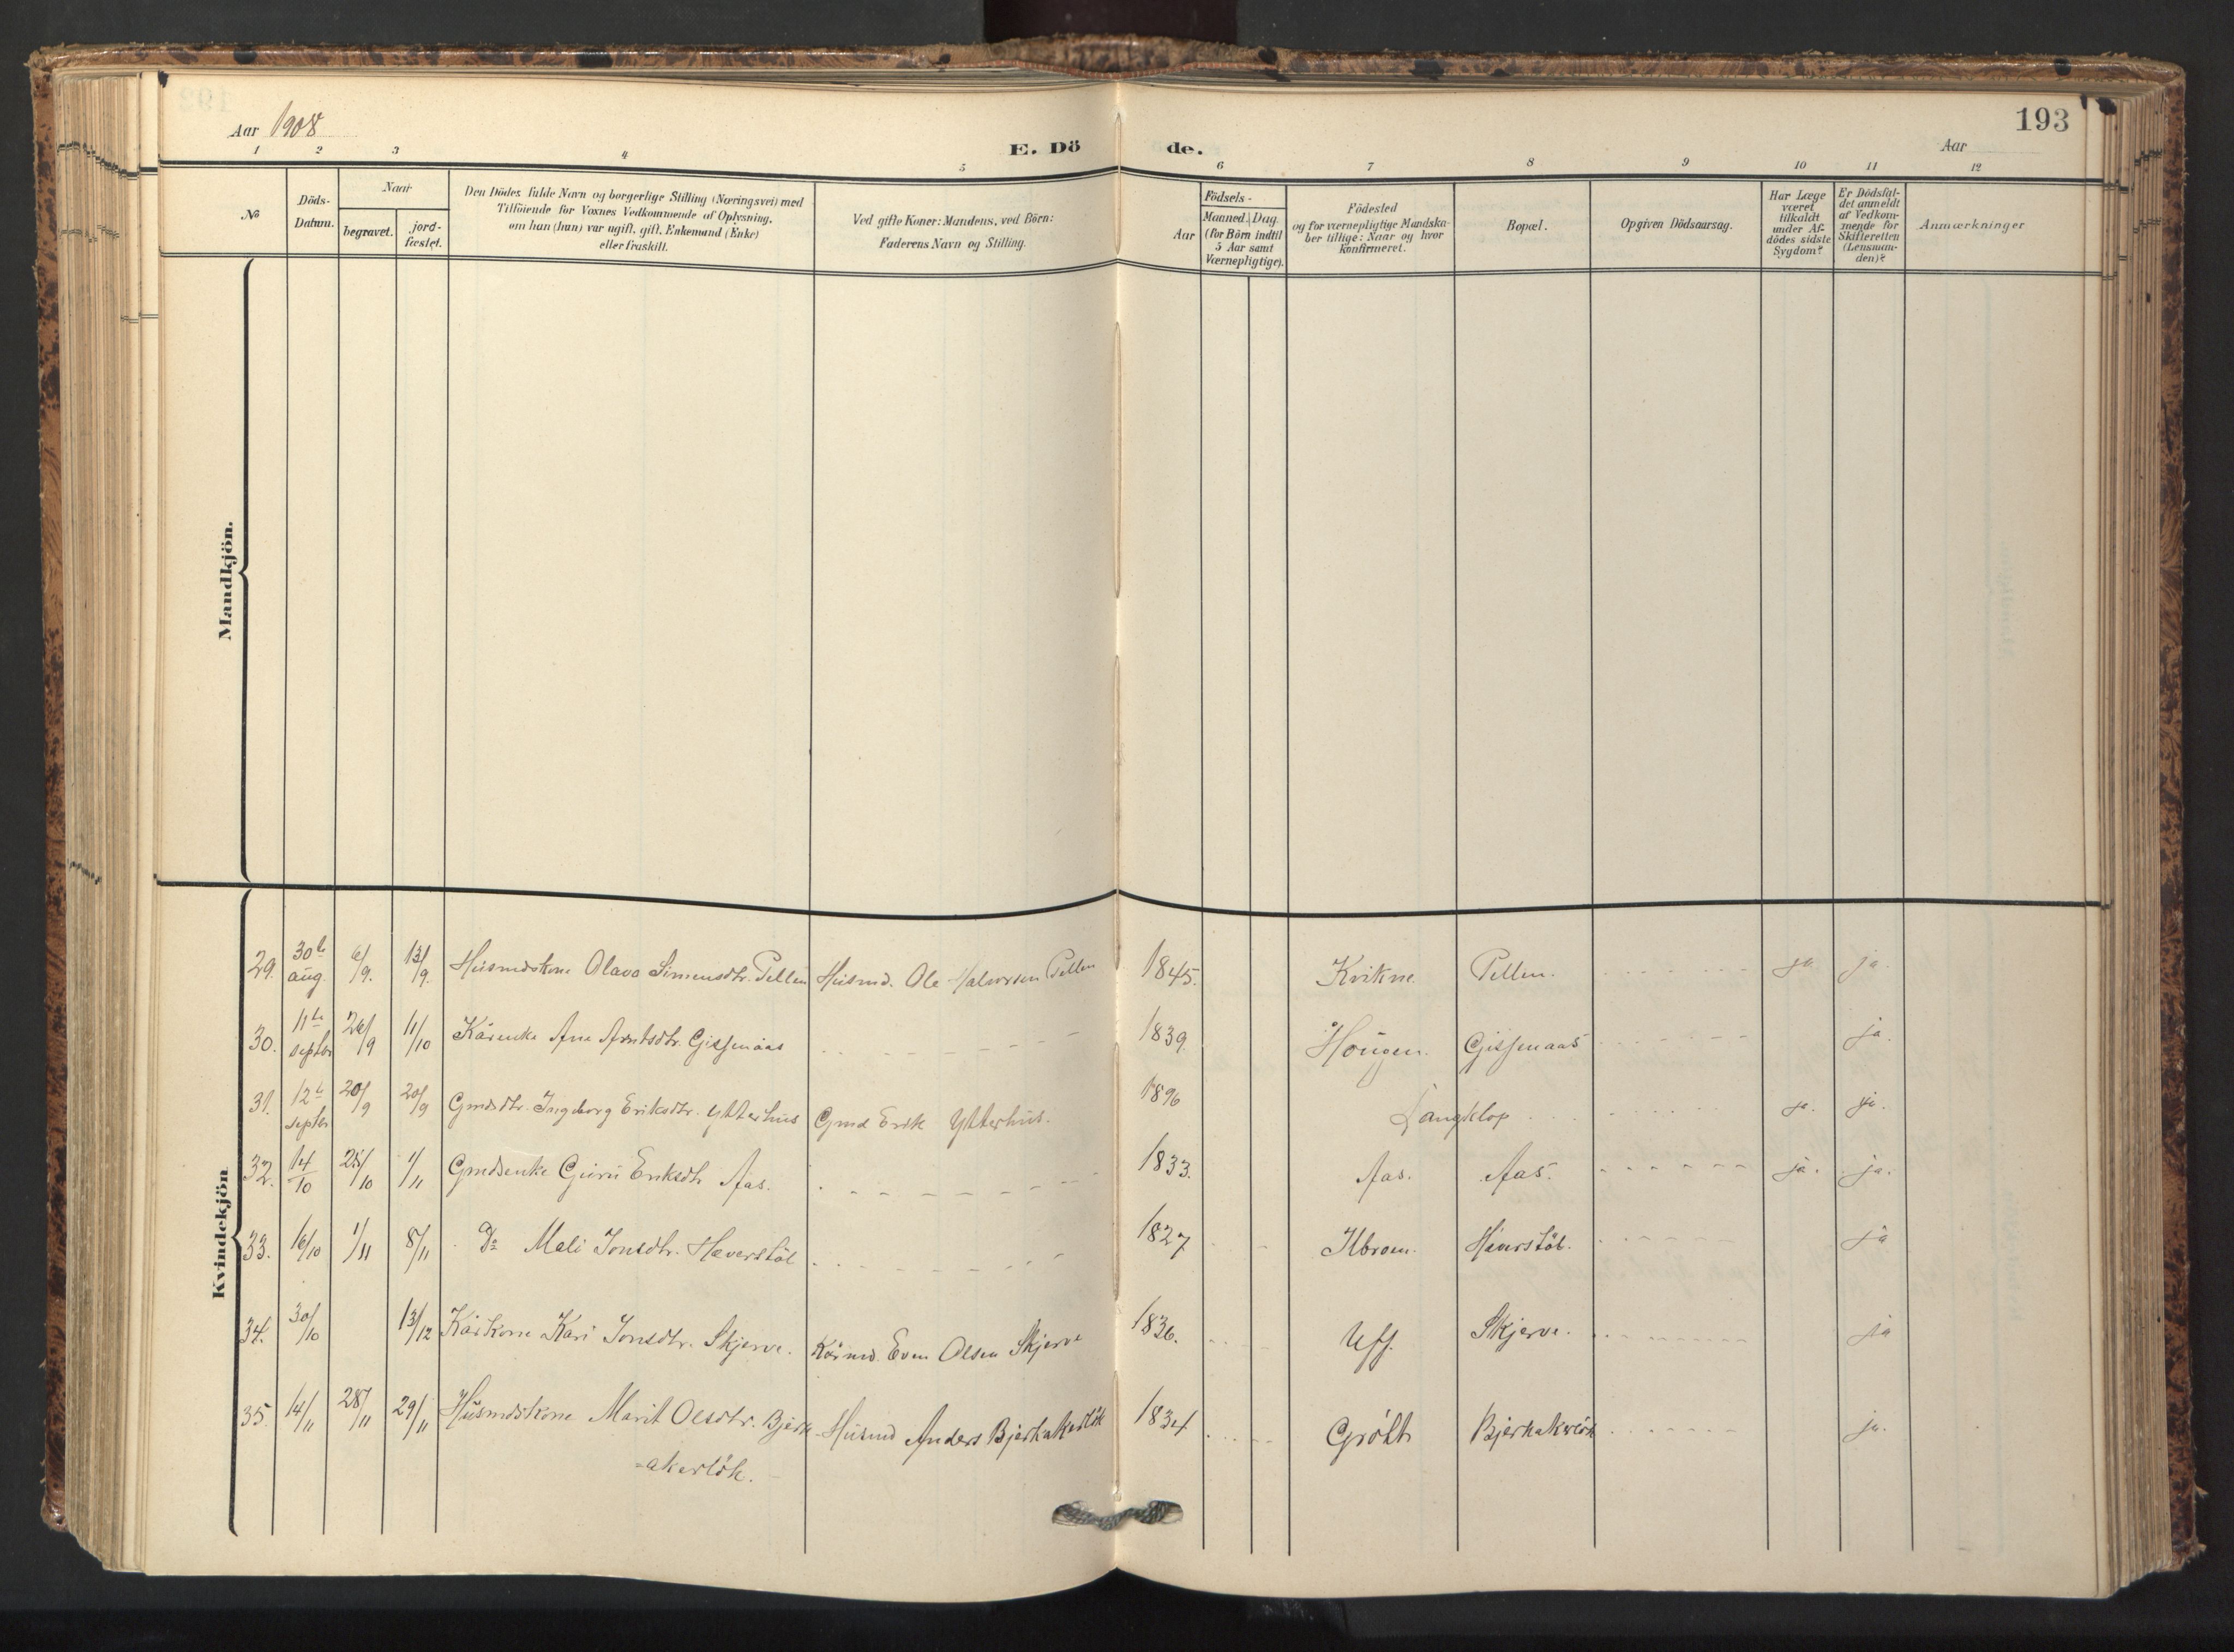 193
Aar 1908
E. Döde.
Aar
1 2 3 4 5 6 7 8 9 10 11 12
No
Döds-Datum.
Naar
begravet.
jord-fæstet.
Den Dödes fulde Navn og borgerlige Stilling (Næringsvei) med
Tilföiende for Voxnes Vedkommende af Oplysning,
om han (hun) var ugift, gift, Enkemand (Enke)
eller fraskilt.
Ved gifte Koner: Mandens, ved Börn:
Faderens Navn og Stilling.
Födsels-
Aar
Maaned. Dag.
(for Börn indtil
5 Aar samt
Værnepligtige).
Födested
og for værnepligtige Mandska-
ber tillige: Naar og hvor
Konfirmeret.
Bopæl.
Opgiven Dödsaarsag.
Har Læge
været
tilkaldt
under Af-
dödes sidste
Sygdom?
Er Dödsfal-
det anmeldt
af Vedkom-
mende for
Skifteretten
(Lensman-
den)?
Anmærkninger
Mandkjön.
Kvindekjön
29. 30te aug. 6/9. 13/9. Husmdskone Olava Simensdtr. Pellen Husmd. Ole Halvorsen Pellen 1845. Kvikne. Pellen. ja ja.
30. 11te septbr 26/9 11/10 Kårenke Ane Arntsdtr. Gissenaas 1839. Hougen. Gissenaas ja.
31. 12te septbr 20/9 20/9 Gmdsdtr. Ingeborg Eriksdtr. Ytterhus Gmd Erik Ytterhus. 1896 Langklop ja. ja.
32. 14/10 25/10 1/11 Gmdsenke Guru Eriksdtr Aas. 1833. Aas. Aas. ja. ja.
33. 16/10 1/11 8/11 Do Mali Jonsdtr. Hæverstöl 1827 Hæverstöl. ja
34. 30/10 13/12 Kårkone Kari Jonsdtr. Skjerve. Kårmd. Even Olsen Skjerve 1836. Uff. Skjerve. ja
35. 14/11 28/11 29/11 Husmdskone Marit Olsdtr. Bjerk- Husmd Anders Bjerkakerlök 1834 Gröllt Bjerkakerlök ja.
=akerlök.